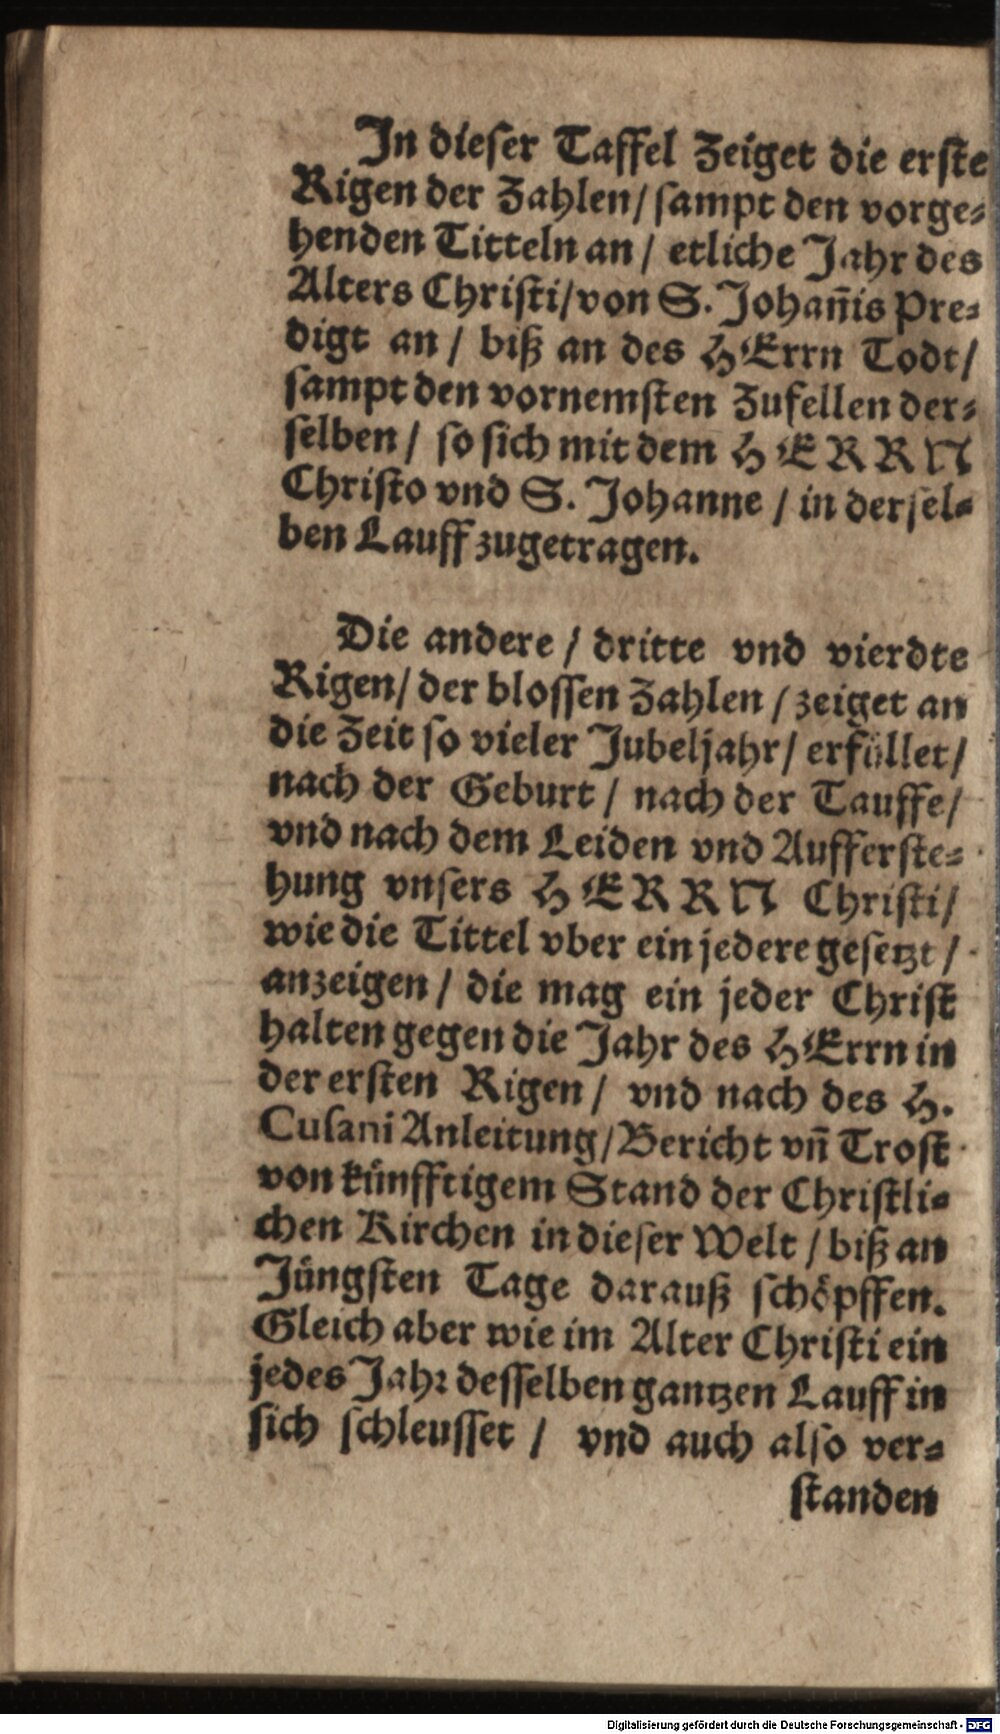 In dieser Taffel Zeiget die erste
Rigen der Zahlen / sampt den vorge⸗
henden Titteln an / etliche Jahr des
Alters Christi / von S. Johañis Pre⸗
digt an / biß an des HErrn Todt /
sampt den vornemsten Zufellen der⸗
selben / so sich mit dem HERRN
Christo vnd S. Johanne / in dersel⸗
ben Lauff zugetragen.
Die andere / dritte vnd vierdte
Rigen / der blossen Zahlen / zeiget an
die Zeit so vieler Jubeljahr / erfüllet /
nach der Geburt / nach der Tauffe /
vnd nach dem Leiden vnd Aufferste⸗
hung vnsers HERRN Christi /
wie die Tittel vber ein jedere gesetzt /
anzeigen / die mag ein jeder Christ
halten gegen die Jahr des HErrn in
der ersten Rigen / vnd nach des H.
Cusani Anleitung / Bericht vñ Trost
von künfftigem Stand der Christli⸗
chen Kirchen in dieser Welt / biß an
Jüngsten Tage darauß schöpffen.
Gleich aber wie im Alter Christi ein
jedes Jahr desselben gantzen Lauff in
sich schleusset / vnd auch also ver⸗
standen
Digitalisierung gefördert durch die Deutsche Forschungsgemeinschaft - DFG